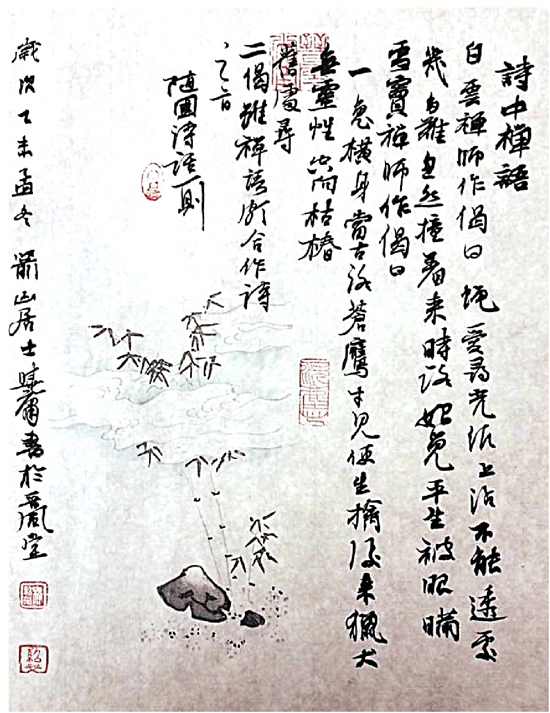 詩中禪語
白雲禪師作偈曰 蠅愛尋光紙上钻 不能透處
幾多難 忽然撞着来時路 始覺平生被眼瞞
雪竇禪師作偈曰
一兔橫身當古路 蒼鷹才見便生擒 後来獵犬
無靈性 空向枯樁
舊處尋
二偈雖禪語頗合作詩
之旨
随園詩話一則
歲次乙未孟冬 山居士 書於 堂